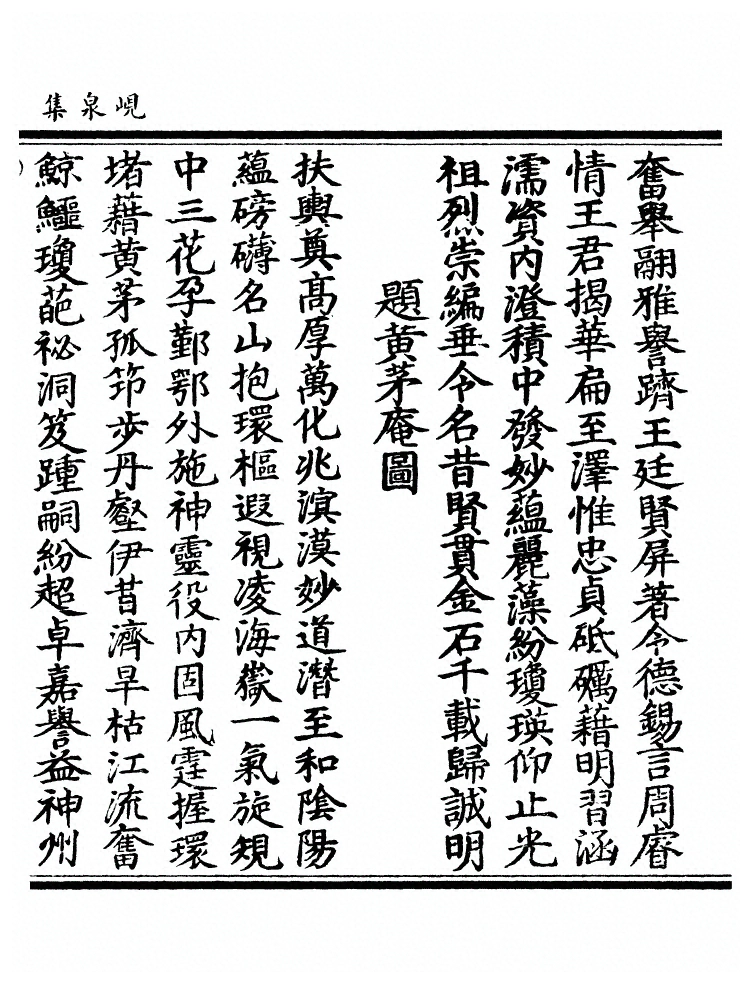 峴泉集
奮舉翮雅譽躋王廷賢屏著令德錫言周睿
情王君揭華扁至澤惟忠貞砥礪藉明習涵
濡資内澄積中發妙蘊麗藻紛瓊瑛仰止光
祖烈崇編垂令名昔賢貫金石千載歸誠明
題黄茅庵圖
扶輿奠髙厚萬化兆溟漠妙道潛至和陰陽
蘊磅礴名山抱環樞遐視凌海嶽一氣旋規
中三花孕鄞鄂外施神靈役内固風霆握環
堵藉黄茅孤筇步丹壑伊昔濟旱枯江流奮
鯨鱷瓊葩祕洞笈踵嗣紛超卓嘉譽益神州